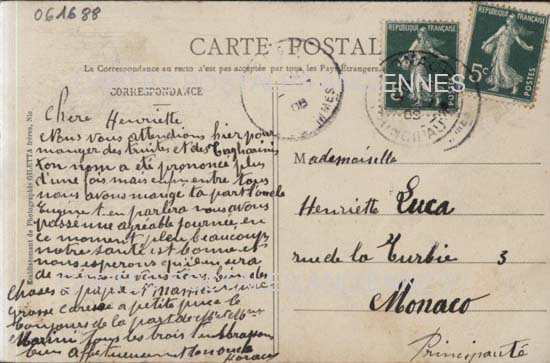 061688
CARTE POSTALE
La Correspondance au recto n'est pas acceptée par tous les Pays Étrangers.
CORRESPONDANCE
RÉPUBLIQUE FRANÇAISE
5c
POSTES
RÉPUBLIQUE FRANÇAISE
5c
POSTES
08
Etablissement de Photographie GILETTA frères, Nic
Chere Henriette
Nous vous attendions hier pour
manger des truites et des
ton nom a été prononcé plus
d'une fois mais enfin entre tous
nous avons mangé ta part l'oncle
Eugene t'en parlera nous avons
passé une agréable journée, en
ce moment pleu beaucoup
notre santé est bonne et
nous esperons qu'il en sera
de même de vous tous bien des
choses a papa et Maman une
grosse caresse a petite puce le
toujours de la part de Mr et Mme
Marini tous les trois t'embrassons
bien affectueusement ton oncle
Mademoiselle
Henriette Luca
rue de la Turbie 3
Monaco
Principauté